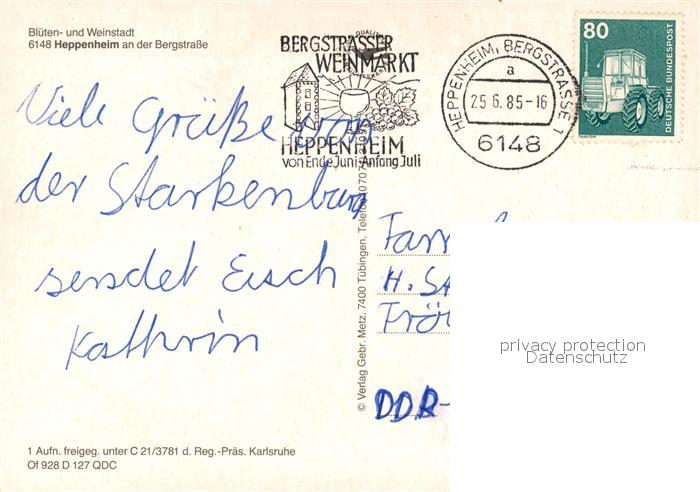 Blüten- und Weinstadt
6148 Heppenheim an der Bergstraße
BERGSTRÄSSER
WEINMARKT
HEPPENHEIM
von Ende Juni-Anfang Juli
HEPPENHEIM, BERGSTRASSE 1
a
25.6.85-16
6148
80
DEUTSCHE BUNDESPOST
TRAKTOR
Viele Grüße von
der Starkenburg
sendet Euch
Kathrin
© Verlag Gebr. Metz, 7400 Tübingen, Telefon
H.
DDR-
privacy protection
Datenschutz
1 Aufn. freigeg. unter C 21/3781 d. Reg.-Präs. Karlsruhe
Of 928 D 127 QDC